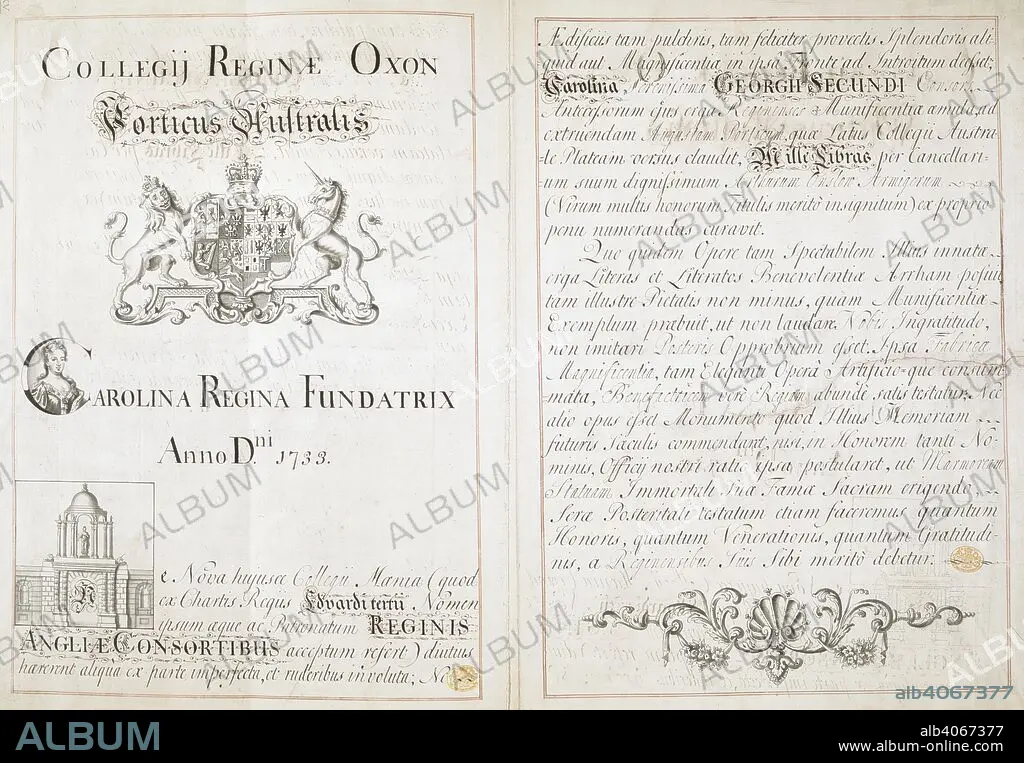 COLLEGIJ REGINÆ OXON
Porticus Australis
CAROLINA REGINA FUNDATRIX
Anno D.ni 1733.
Ne Nova hujusce Collegij Mænia (quod
ex Chartis Regiis Edvardi tertii Nomen
ipsum æque ac Patronatum REGINIS
ANGLIÆ CONSORTIBUS acceptum refert) diutius
hærerent aliqua ex parte imperfecta, et ruderibus involuta; Ne
Ædificiis tam pulchris, tam feliciter provectis Splendoris ali-
quid aut Magnificentiæ in ipsa Fronte ad Introitum deesset;
Carolina, Serenissima GEORGII SECUNDI Consors,
Antecessorum ejus erga Reginenses Munificentiæ æmula, ad
extruendam Augustam Porticum, quæ Latus Collegii Austra-
-le Plateam versus claudit, Mille Libras per Cancellari-
-um suum dignissimum Arthurum Onslow Armigerum
(Virum multis honorum Titulis meritò insignitum) ex proprio
penu numerandas curavit.
Quo quidem Opere tam Spectabilem Illius innatæ
erga Literas et Literatos Benevolentiæ Arrham posuit,
tam illustre Pietatis non minus, quàm Munificentiæ
Exemplum præbuit, ut non laudare Nobis Ingratitudo,
non imitari Posteris Opprobrium esset. Ipsa Fabricæ
Magnificentia, tam Eleganti Opera Artificio-que consum-
mata, Benefactricem verè Regiam abundè satis testatur. Nec
alio opus esset Monumento quod Illius Memoriam
futuris Sæculis commendaret, nisi, in Honorem tanti No-
minis, Officij nostri ratio ipsa postularet, ut Marmoream
Statuam Immortali Suæ Famæ Sacram erigendo,
Seræ Posteritati testatum etiam faceremus, quantum
Honoris, quantum Venerationis, quantum Gratitudi-
nis, a Reginensibus Suis Sibi meritò debetur.
ALBUM
alb4067377
ALBUM
alb4067377
www.album-online.com